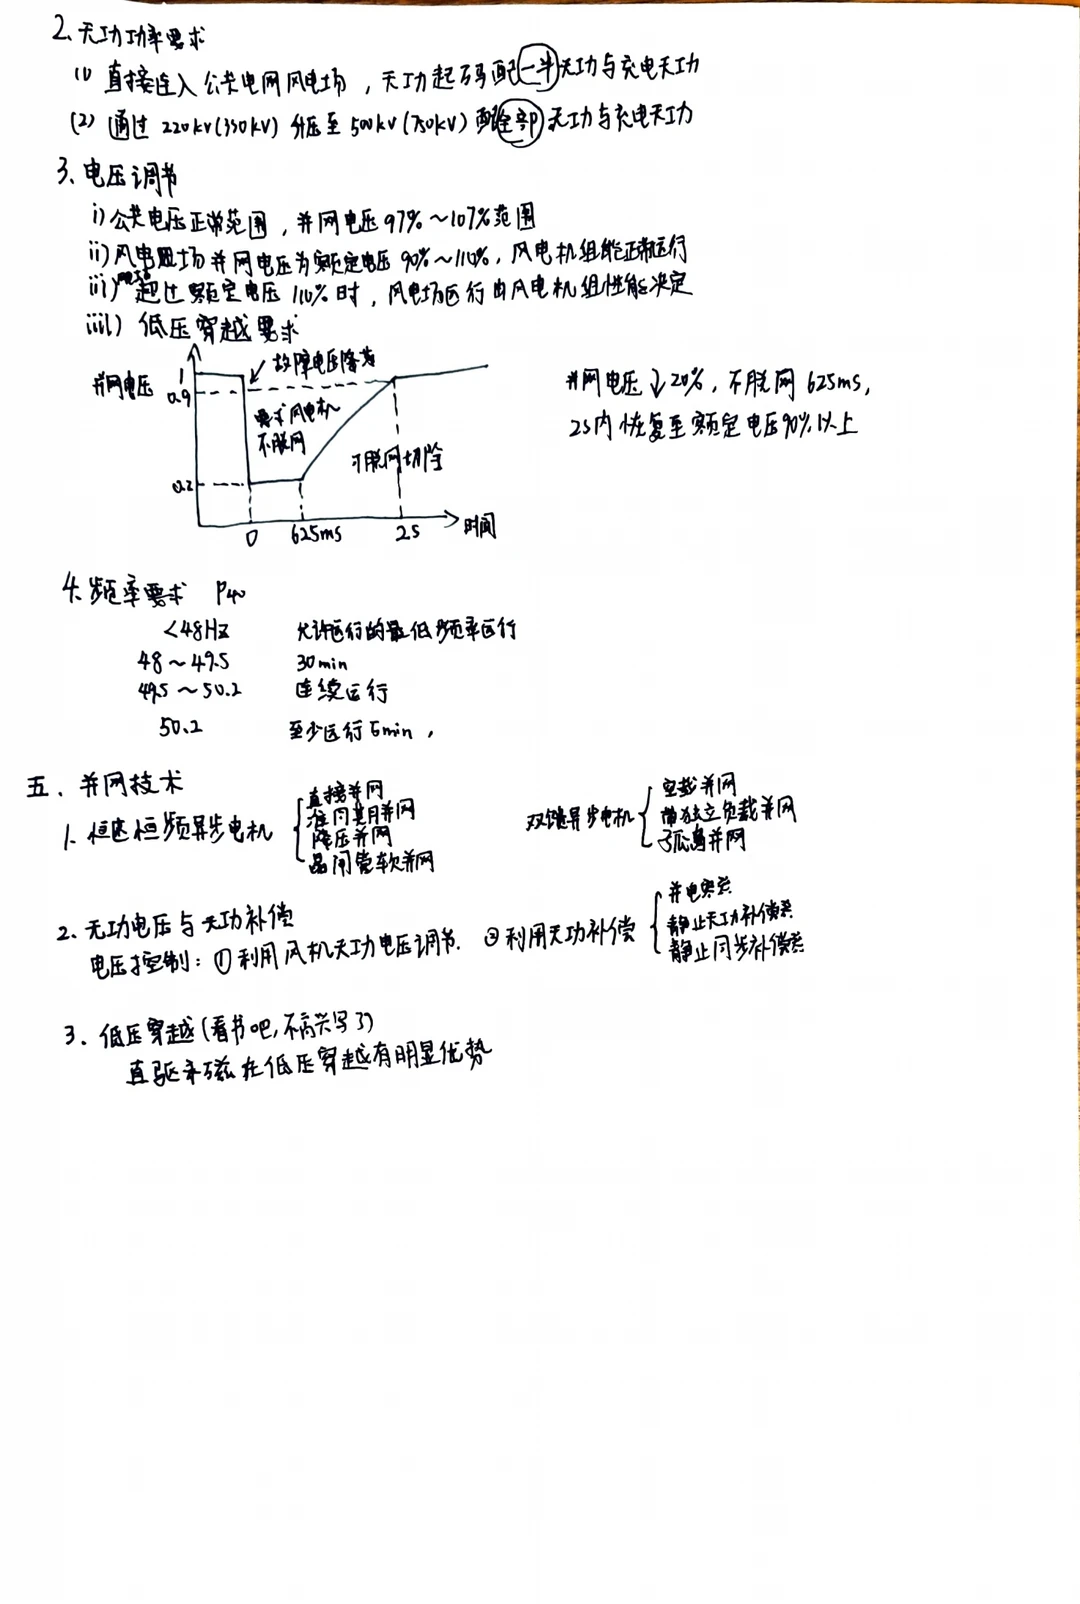 2、无功功率要求
(1) 直接连入公共电网风电场，无功起码配一半无功与充电无功
(2) 通过220kV(330kV)升压至500kV(750kV)配全部无功与充电无功
3、电压调节
i)公共电压正常范围，并网电压97%～107%范围
ii)风电场并网电压为额定电压90%～110%，风电机组能正常运行
iii)超过额定电压110%时，风电场运行由风电机组性能决定
iiii) 低压穿越要求
并网电压
1
0.9
0.2
故障电压降落
要求风电机
不脱网
可脱网切除
0 625ms 2s 时间
并网电压↓20%，不脱网625ms，
2s内恢复至额定电压90%以上
4、频率要求 P40
<48Hz 允许运行的最低频率运行
48～49.5 30min
49.5～50.2 连续运行
50.2 至少运行5min，
五、并网技术
1、恒速恒频异步电机
直接并网
准同期并网
降压并网
晶闸管软并网
双馈异步电机
空载并网
带独立负载并网
孤岛并网
2、无功电压与无功补偿
电压控制：①利用风机无功电压调节. ②利用无功补偿
并电容器
静止无功补偿器
静止同步补偿器
3. 低压穿越(看书吧,不高兴写了)
直驱永磁在低压穿越有明显优势